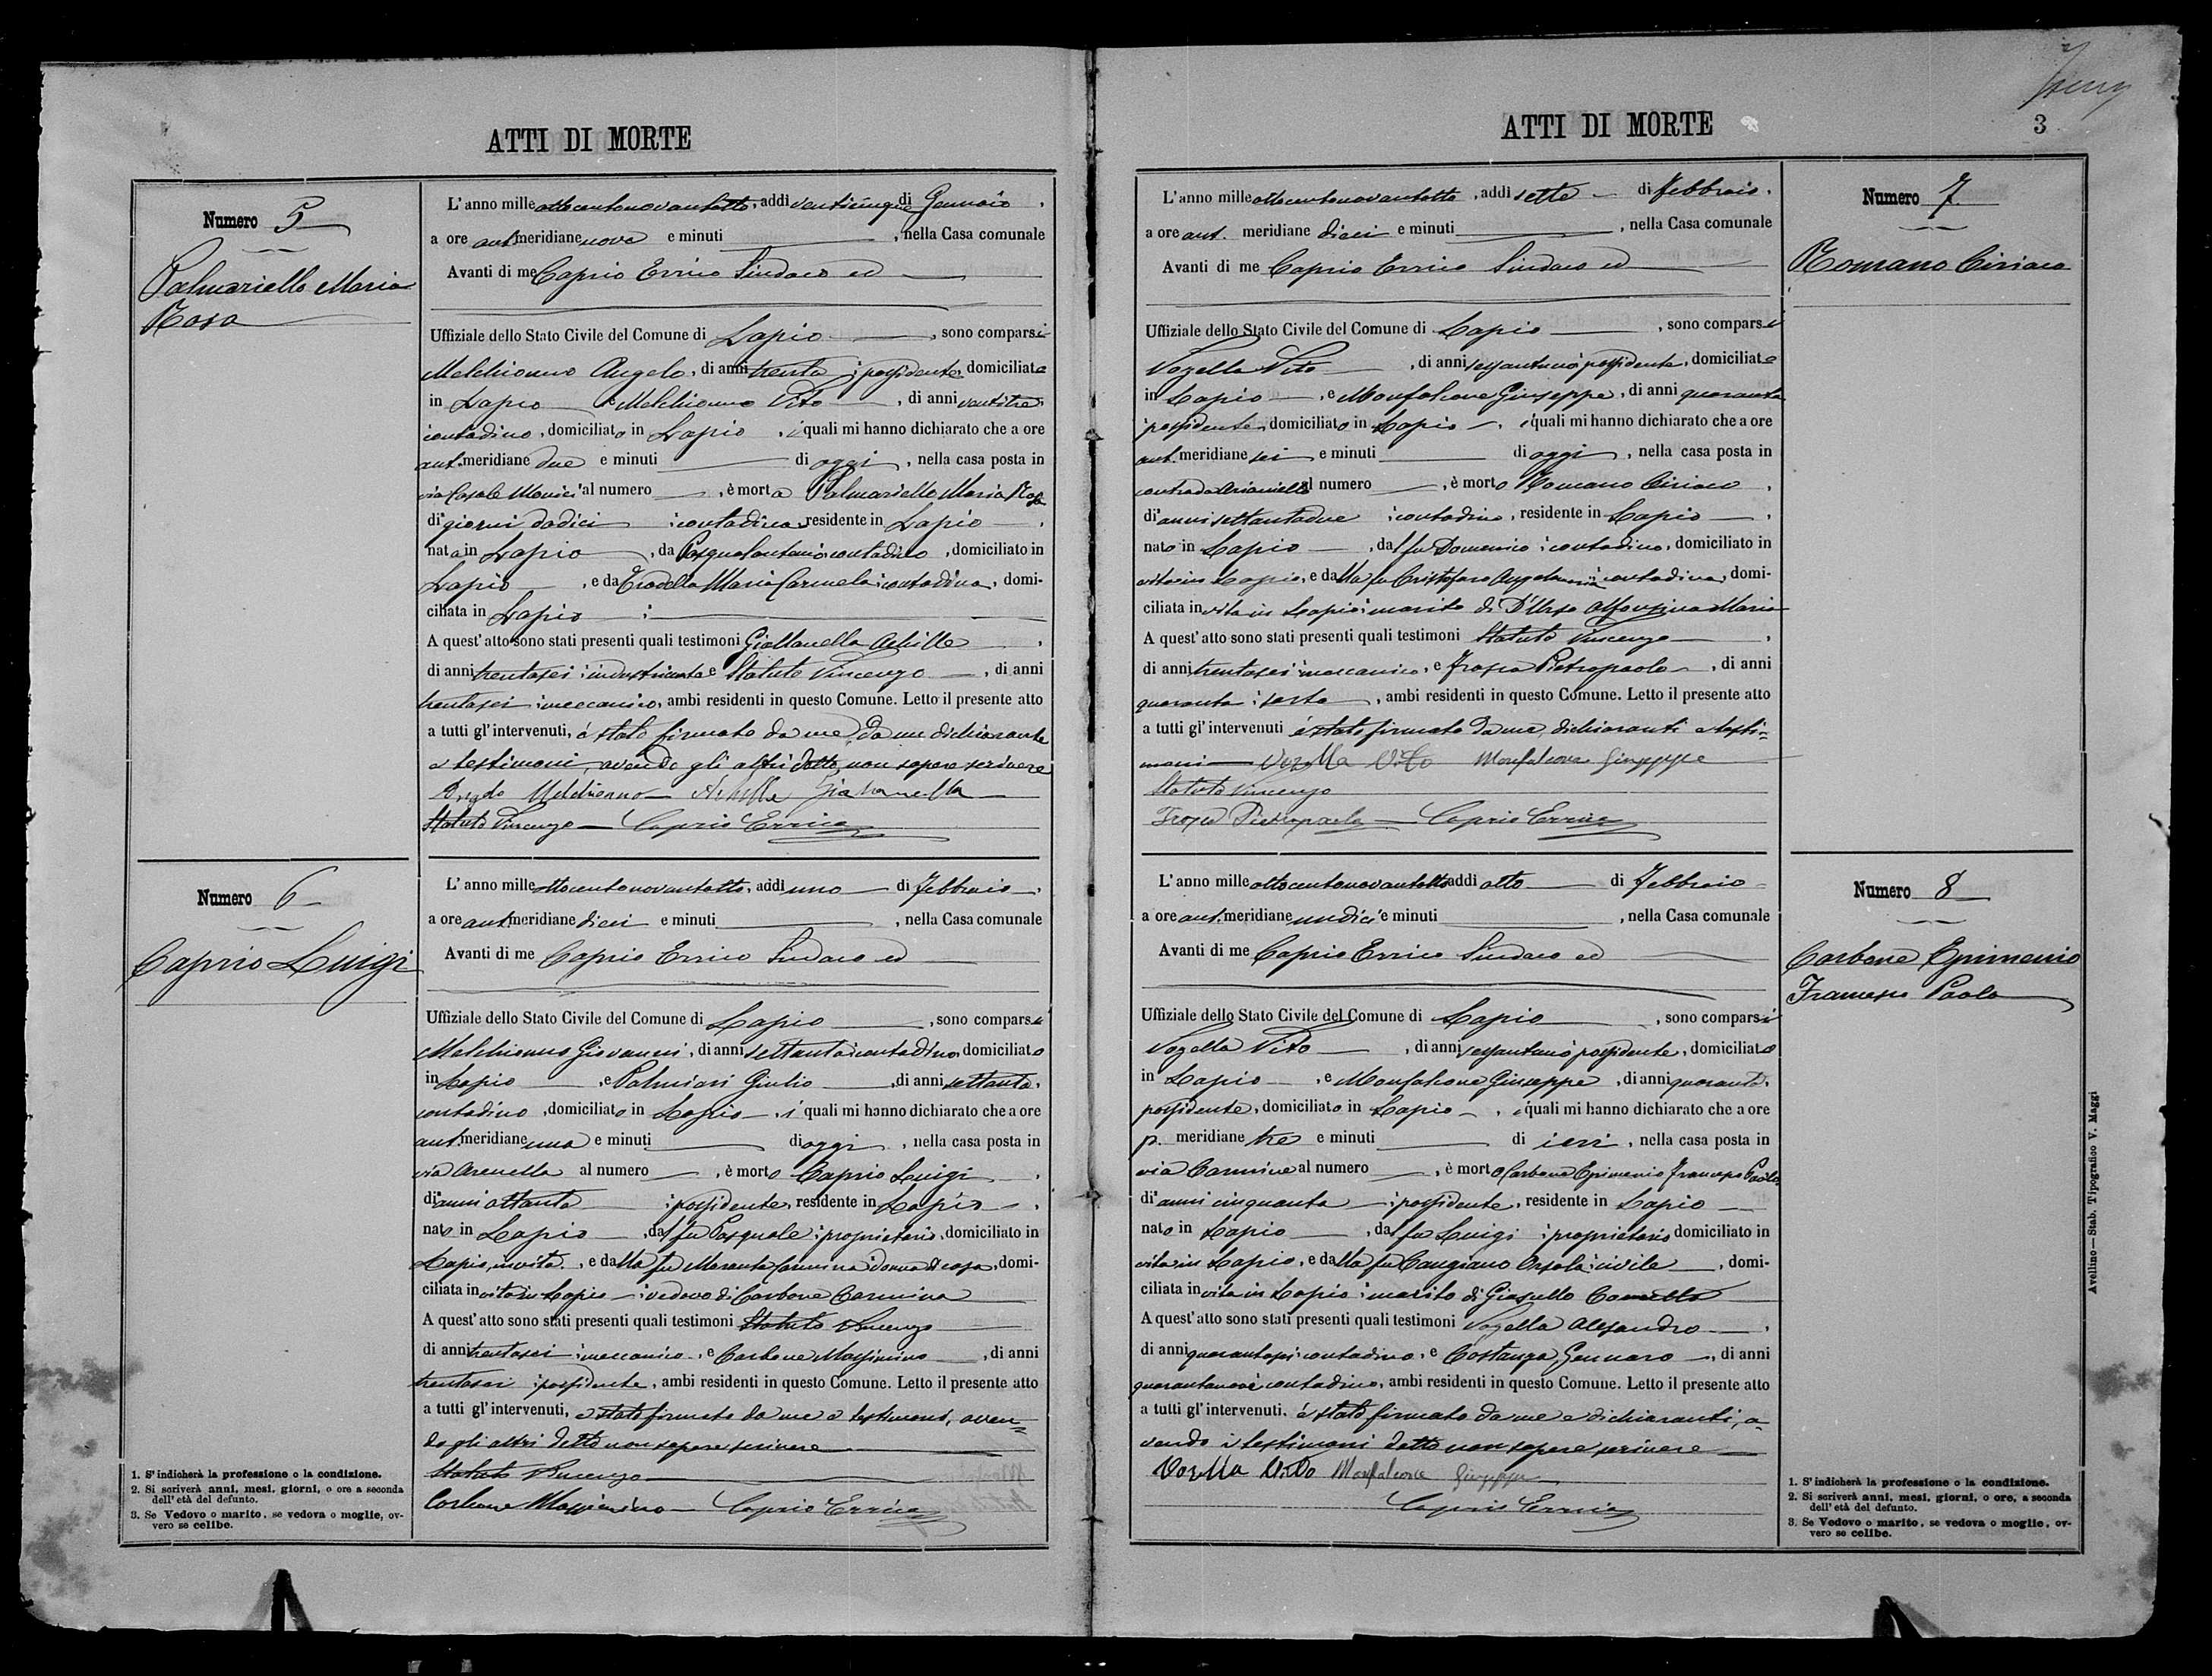 ATTI DI MORTE
Numero 5
Palmariello Maria
Rosa
L'anno mille ottocentonovantotto, addì venticinque di Gennaio,
a ore ant. meridiane nove e minuti , nella Casa comunale
Avanti di me Caprio Errico Sindaco ed
Uffiziale dello Stato Civile del Comune di Lapio , sono comparsi
Melchionno Angelo, di anni trenta, possidente, domiciliato
in Lapio e Melchionno Vito , di anni ventitre,
contadino, domiciliato in Lapio , i quali mi hanno dichiarato che a ore
ant. meridiane due e minuti di oggi , nella casa posta in
via Casale al numero , è morta Palmariello Maria Rosa
di giorni dodici , contadina, residente in Lapio ,
nata in Lapio , da Pasqualantonio contadino , domiciliato in
Lapio , e da Maria Carmela contadina, domi-
ciliata in Lapio
A quest'atto sono stati presenti quali testimoni Giallanella Achille ,
di anni trentasei, industriante e Statuto Vincenzo , di anni
trentasei, meccanico, ambi residenti in questo Comune. Letto il presente atto
a tutti gl'intervenuti, è stato firmato da me, da un dichiarante
e testimoni, avendo gli altri detto non sapere scrivere
Angelo Melchionno Achille Giallanella
Statuto Vincenzo Caprio Errico
Numero 6
Caprio Luigi
L'anno mille ottocentonovantotto, addì uno di Febbraio,
a ore ant. meridiane dieci e minuti , nella Casa comunale
Avanti di me Caprio Errico Sindaco ed
Uffiziale dello Stato Civile del Comune di Lapio , sono comparsi
Melchionno Giovanni, di anni settanta contadino, domiciliato
in Lapio , e Palmieri Giulio , di anni settanta,
contadino , domiciliato in Lapio , i quali mi hanno dichiarato che a ore
ant. meridiane una e minuti di oggi , nella casa posta in
via Arenella al numero , è morto Caprio Luigi ,
di anni ottanta , possidente, residente in Lapio ,
nato in Lapio , dal fu Pasquale, proprietario, domiciliato in
Lapio, in vita , e dalla fu Carmina donna di casa, domi-
ciliata in vita in Lapio vedovo di Carbone Carmina
A quest'atto sono stati presenti quali testimoni Statuto Vincenzo
di anni trentasei, meccanico, e Carbone Massimino , di anni
trentasei, possidente, ambi residenti in questo Comune. Letto il presente atto
a tutti gl'intervenuti, è stato firmato da me e testimoni, aven-
do gli altri detto non sapere scrivere
Statuto Vincenzo
Carbone Massimino Caprio Errico
1. S'indicherà la professione o la condizione.
2. Si scriverà anni, mesi, giorni, o ore a seconda
dell'età del defunto.
3. Se Vedovo o marito, se vedova o moglie, ov-
vero se celibe.
ATTI DI MORTE
3
Numero 7
Romano Ciriaco
L'anno mille ottocentonovantotto, addì sette di Febbraio,
a ore ant. meridiane dieci e minuti , nella Casa comunale
Avanti di me Caprio Errico Sindaco ed
Uffiziale dello Stato Civile del Comune di Lapio , sono comparsi
Vozella Vito , di anni sessantuno possidente, domiciliato
in Lapio , e Monfalcone Giuseppe, di anni quaranta
possidente, domiciliato in Lapio , i quali mi hanno dichiarato che a ore
ant. meridiane sei e minuti di oggi , nella casa posta in
contrada Arianiello al numero , è morto Romano Ciriaco ,
di anni settantadue , contadino, residente in Lapio ,
nato in Lapio , dal fu Domenico, contadino, domiciliato in
vita in Lapio, e dalla fu Cristofaro contadina, domi-
ciliata in vita in Lapio marito di D'Urso Alfonsina Maria
A quest'atto sono stati presenti quali testimoni Statuto Vincenzo ,
di anni trentasei, meccanico, e Frosca Pietropaolo , di anni
quaranta, sarto , ambi residenti in questo Comune. Letto il presente atto
a tutti gl'intervenuti è stato firmato da me, dichiaranti e testi-
moni Vozella Vito Monfalcone Giuseppe
Statuto Vincenzo
Pietropaolo Caprio Errico
Numero 8
Carbone Epimenio
Francesco Paolo
L'anno mille ottocentonovantotto addì otto di Febbraio
a ore ant. meridiane undici e minuti , nella Casa comunale
Avanti di me Caprio Errico Sindaco ed
Uffiziale dello Stato Civile del Comune di Lapio , sono comparsi
Vozella Vito , di anni sessantuno possidente, domiciliato
in Lapio , e Monfalcone Giuseppe , di anni quaranta,
possidente, domiciliato in Lapio , i quali mi hanno dichiarato che a ore
p. meridiane tre e minuti di ieri , nella casa posta in
via Carmine al numero , è morto Carbone Epimenio Francesco Paolo,
di anni cinquanta , possidente, residente in Lapio
nato in Lapio , dal fu Luigi , proprietario domiciliato in
vita in Lapio, e dalla fu Cangiano Orsola civile , domi-
ciliata in vita in Lapio marito di Giasullo
A quest'atto sono stati presenti quali testimoni Vozella Alesandro ,
di anni quarantasei contadino, e Costanza Gennaro , di anni
quarantanove contadino, ambi residenti in questo Comune. Letto il presente atto
a tutti gl'intervenuti. è stato firmato da me e dichiaranti, a-
vendo i testimoni detto non sapere scrivere
Vozella Vito Monfalcone Giuseppe
Caprio Errico
1. S'indicherà la professione o la condizione.
2. Si scriverà anni, mesi, giorni, o ore, a seconda
dell'età del defunto.
3. Se Vedovo o marito, se vedova o moglie, ov-
vero se celibe.
Avellino—Stab. Tipografico V. Maggi